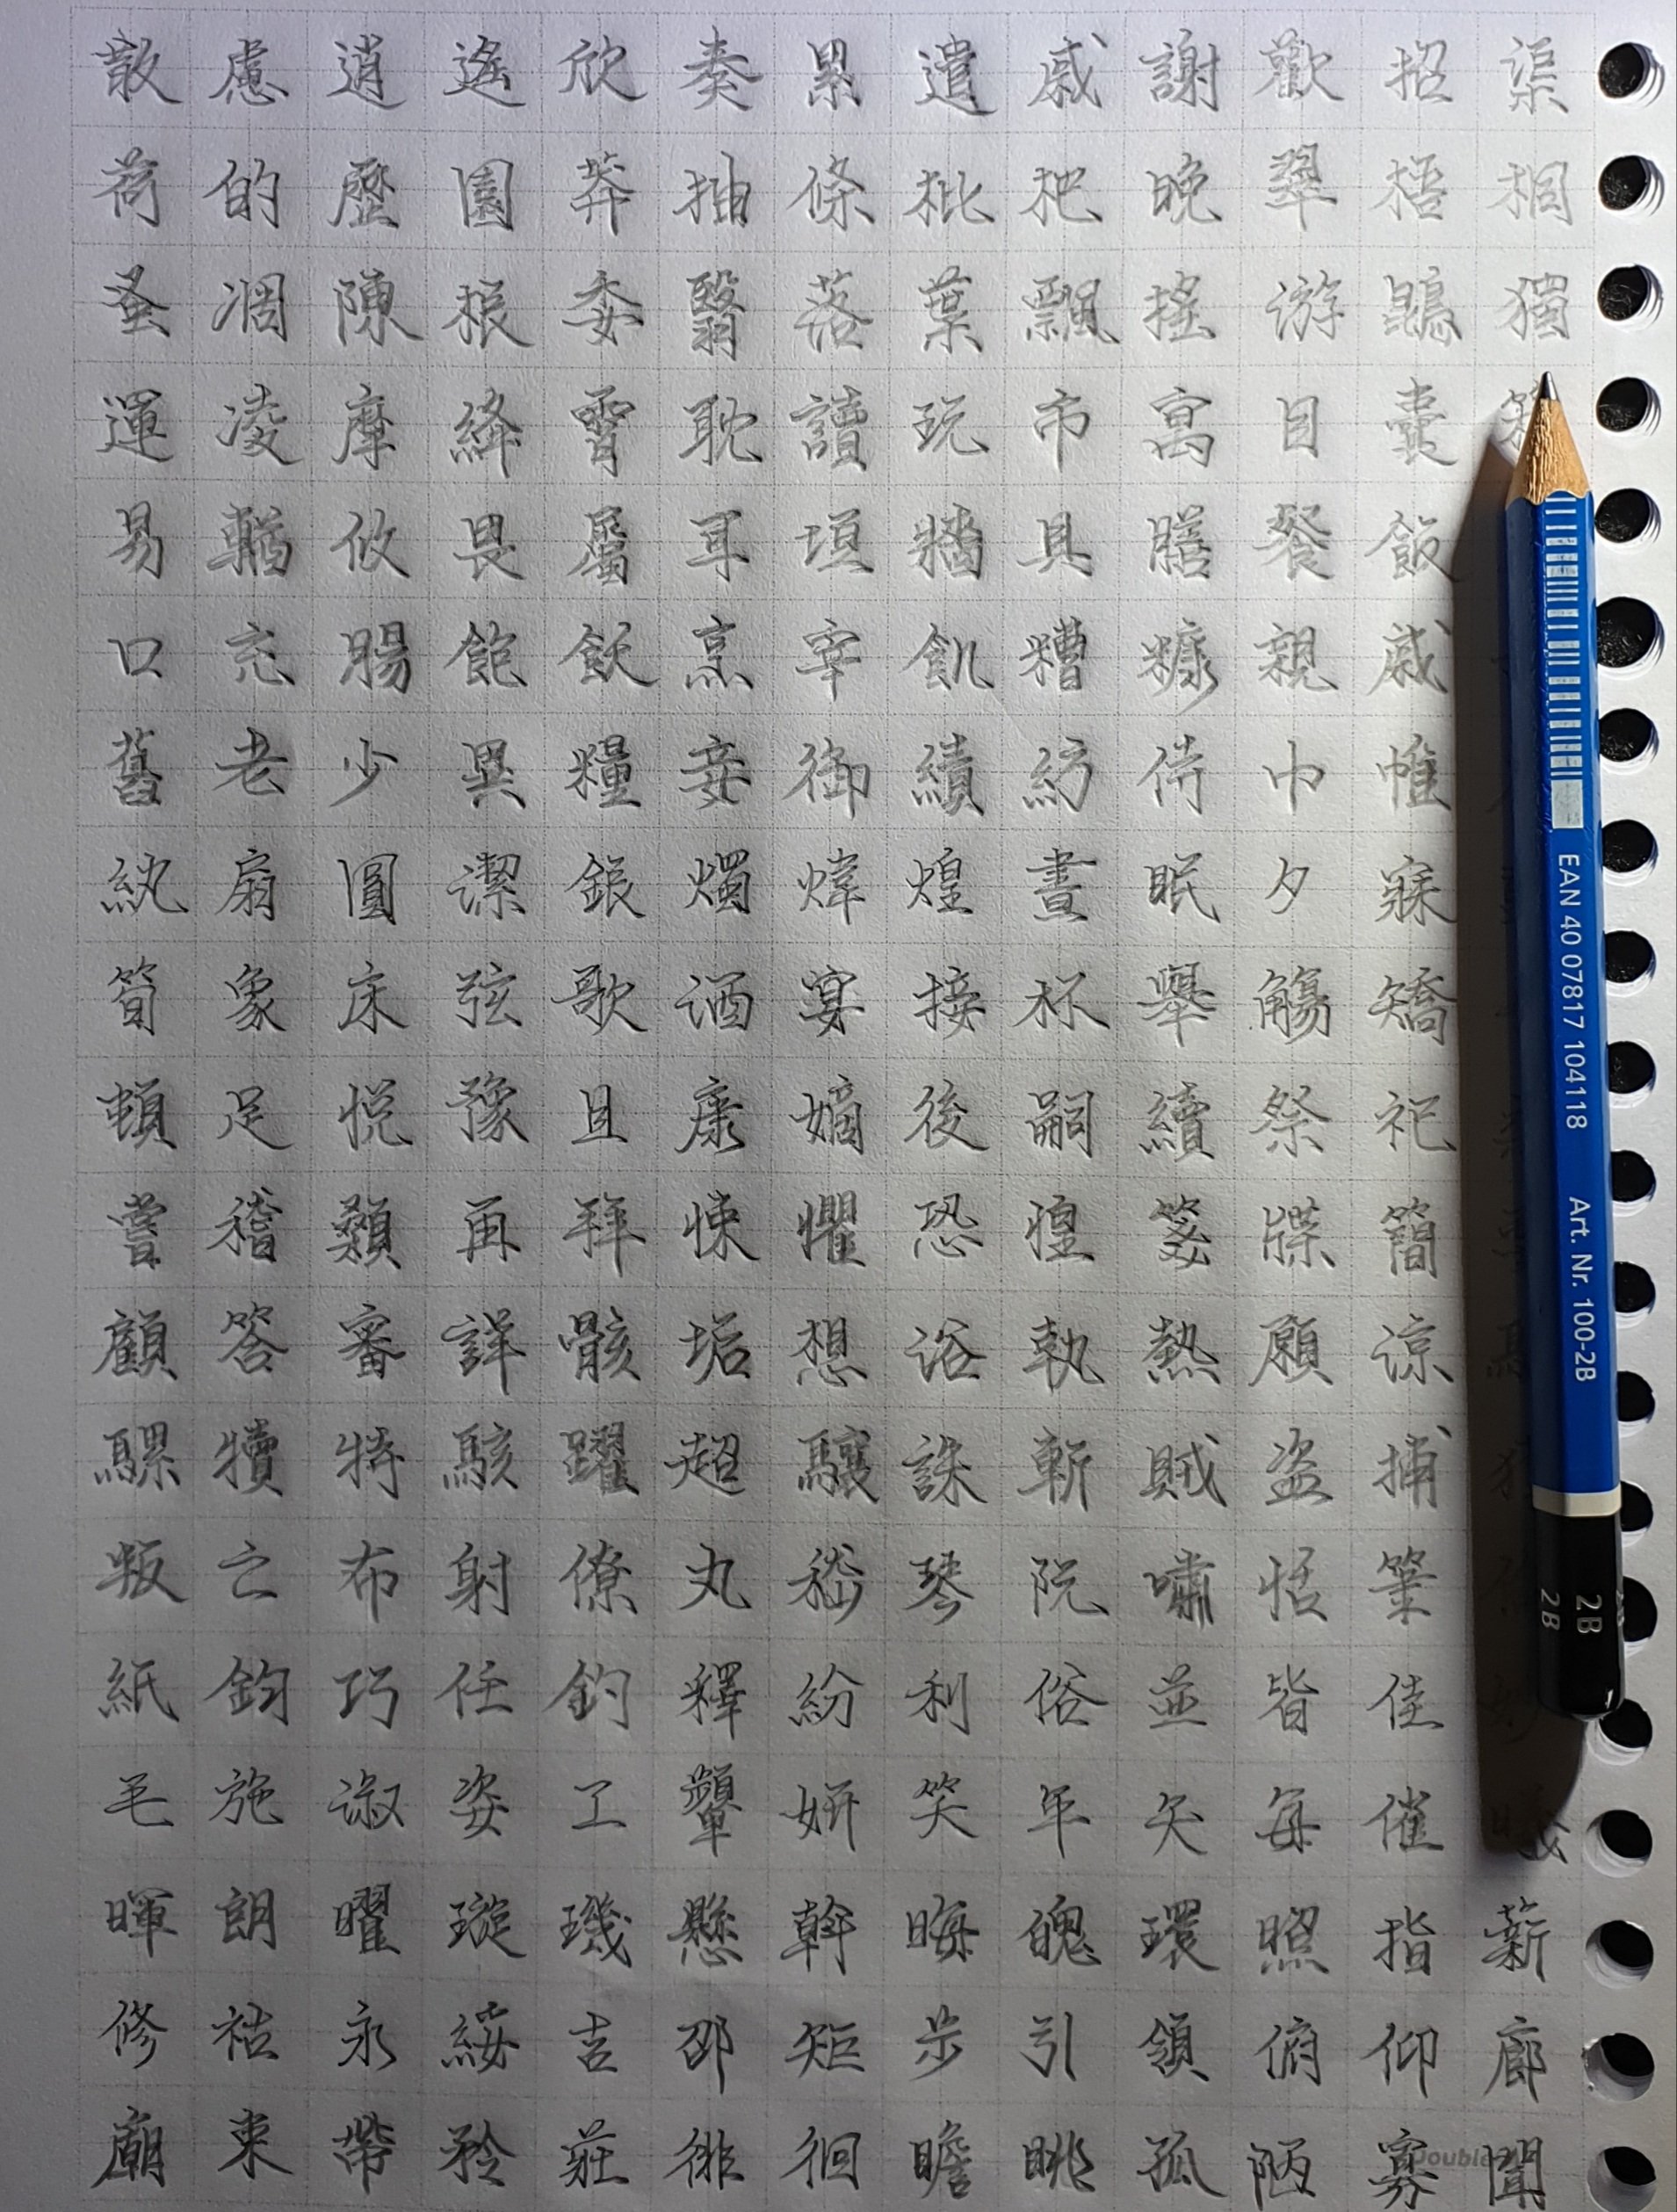 散慮逍遙欣奏累遣戚謝歡招渠
荷的歷園莽抽條枇杷晚翠梧桐
蚤凋陳根委翳落葉飄搖游鵾獨
運凌摩絳霄耽讀玩市寓目囊
易輶攸畏屬耳垣牆具膳餐飯
口充腸飽飫烹宰飢糟糠親戚
舊老少異糧妾御績紡侍巾帷
紈扇圓潔銀燭煒煌晝眠夕寐
筍象床弦歌酒宴接杯舉觴矯
頓足悅豫且康嫡後嗣續祭祀
嘗稽顙再拜悚懼恐惶箋牒簡
顧答審詳骸垢想浴執熱願涼
騾犢特駭躍超驤誅斬賊盜捕
叛亡布射僚丸嵇琴阮嘯恬筆
紙鈞巧任釣釋紛利俗並皆佳
毛施淑姿工顰妍笑年矢每催
暉朗曜璇璣懸斡晦魄環照指薪
修祜永綏吉邵矩步引領俯仰廊
廟束帶矜莊徘徊瞻眺孤陋寡聞
EAN 40 07817 104118 Art. Nr. 100-2B
2B
2B
Double